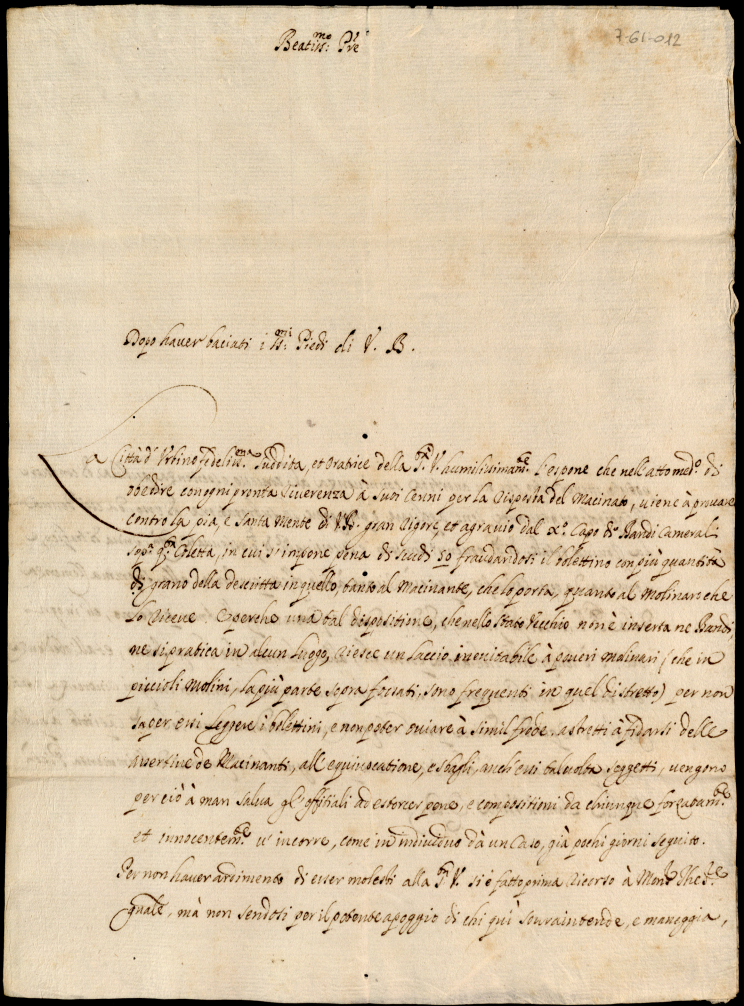 Beatiss:mo Pre
7-61-012
Dopo haver baciati i SS:mi Piedi di V. B.
La Città d'Urbino fedeliss.ma suddita, et oratrice della S.tà V. humilissimam.te l'espone che nell'atto med.o di
obedire con ogni pronta riverenza à suoi cenni per la risposta del Macinato, viene à provare
contro la pia, e santa mente di V.B. gran rigore, et agravio dal x.o Capo de Bandi Camerali
sop.a q.ta Colletta, in cui s'impone pena di scudi 50 fraudandosi il bolettino con più quantità
di grano della descritta in quello, tanto al Macinante, che lo porta, quanto al Molinaro che
lo riceve. E perche una tal dispositione, che nello Stato Vecchio non è inserta ne Bandi,
ne si pratica in alcun luogo, riesce un laccio inevitabile à poveri molinari (che in
piccioli Molini, la più parte sopra fossati, sono frequenti in quel distretto) per non
saper essi leggere i bolettini, e non poter oviare à simil frode, astretti à fidarsi delle
assertive de Macinanti, all'equivocatione, e sbagli, anch'essi talvolta soggetti, vengono
perciò à man salva gl'offitiali ad estorcer pene, e compositioni da chiunque forzatam.te
et innocentem.te v'incorre, come in individuo dà un caso, già pochi giorni seguito.
Per non haver ardimento di esser molesti alla S.tà V. si è fatto prima ricorso à Mons.r The.re
gnale, mà non sendosi per il potente apoggio di chi quì sovraintende, e maneggia,